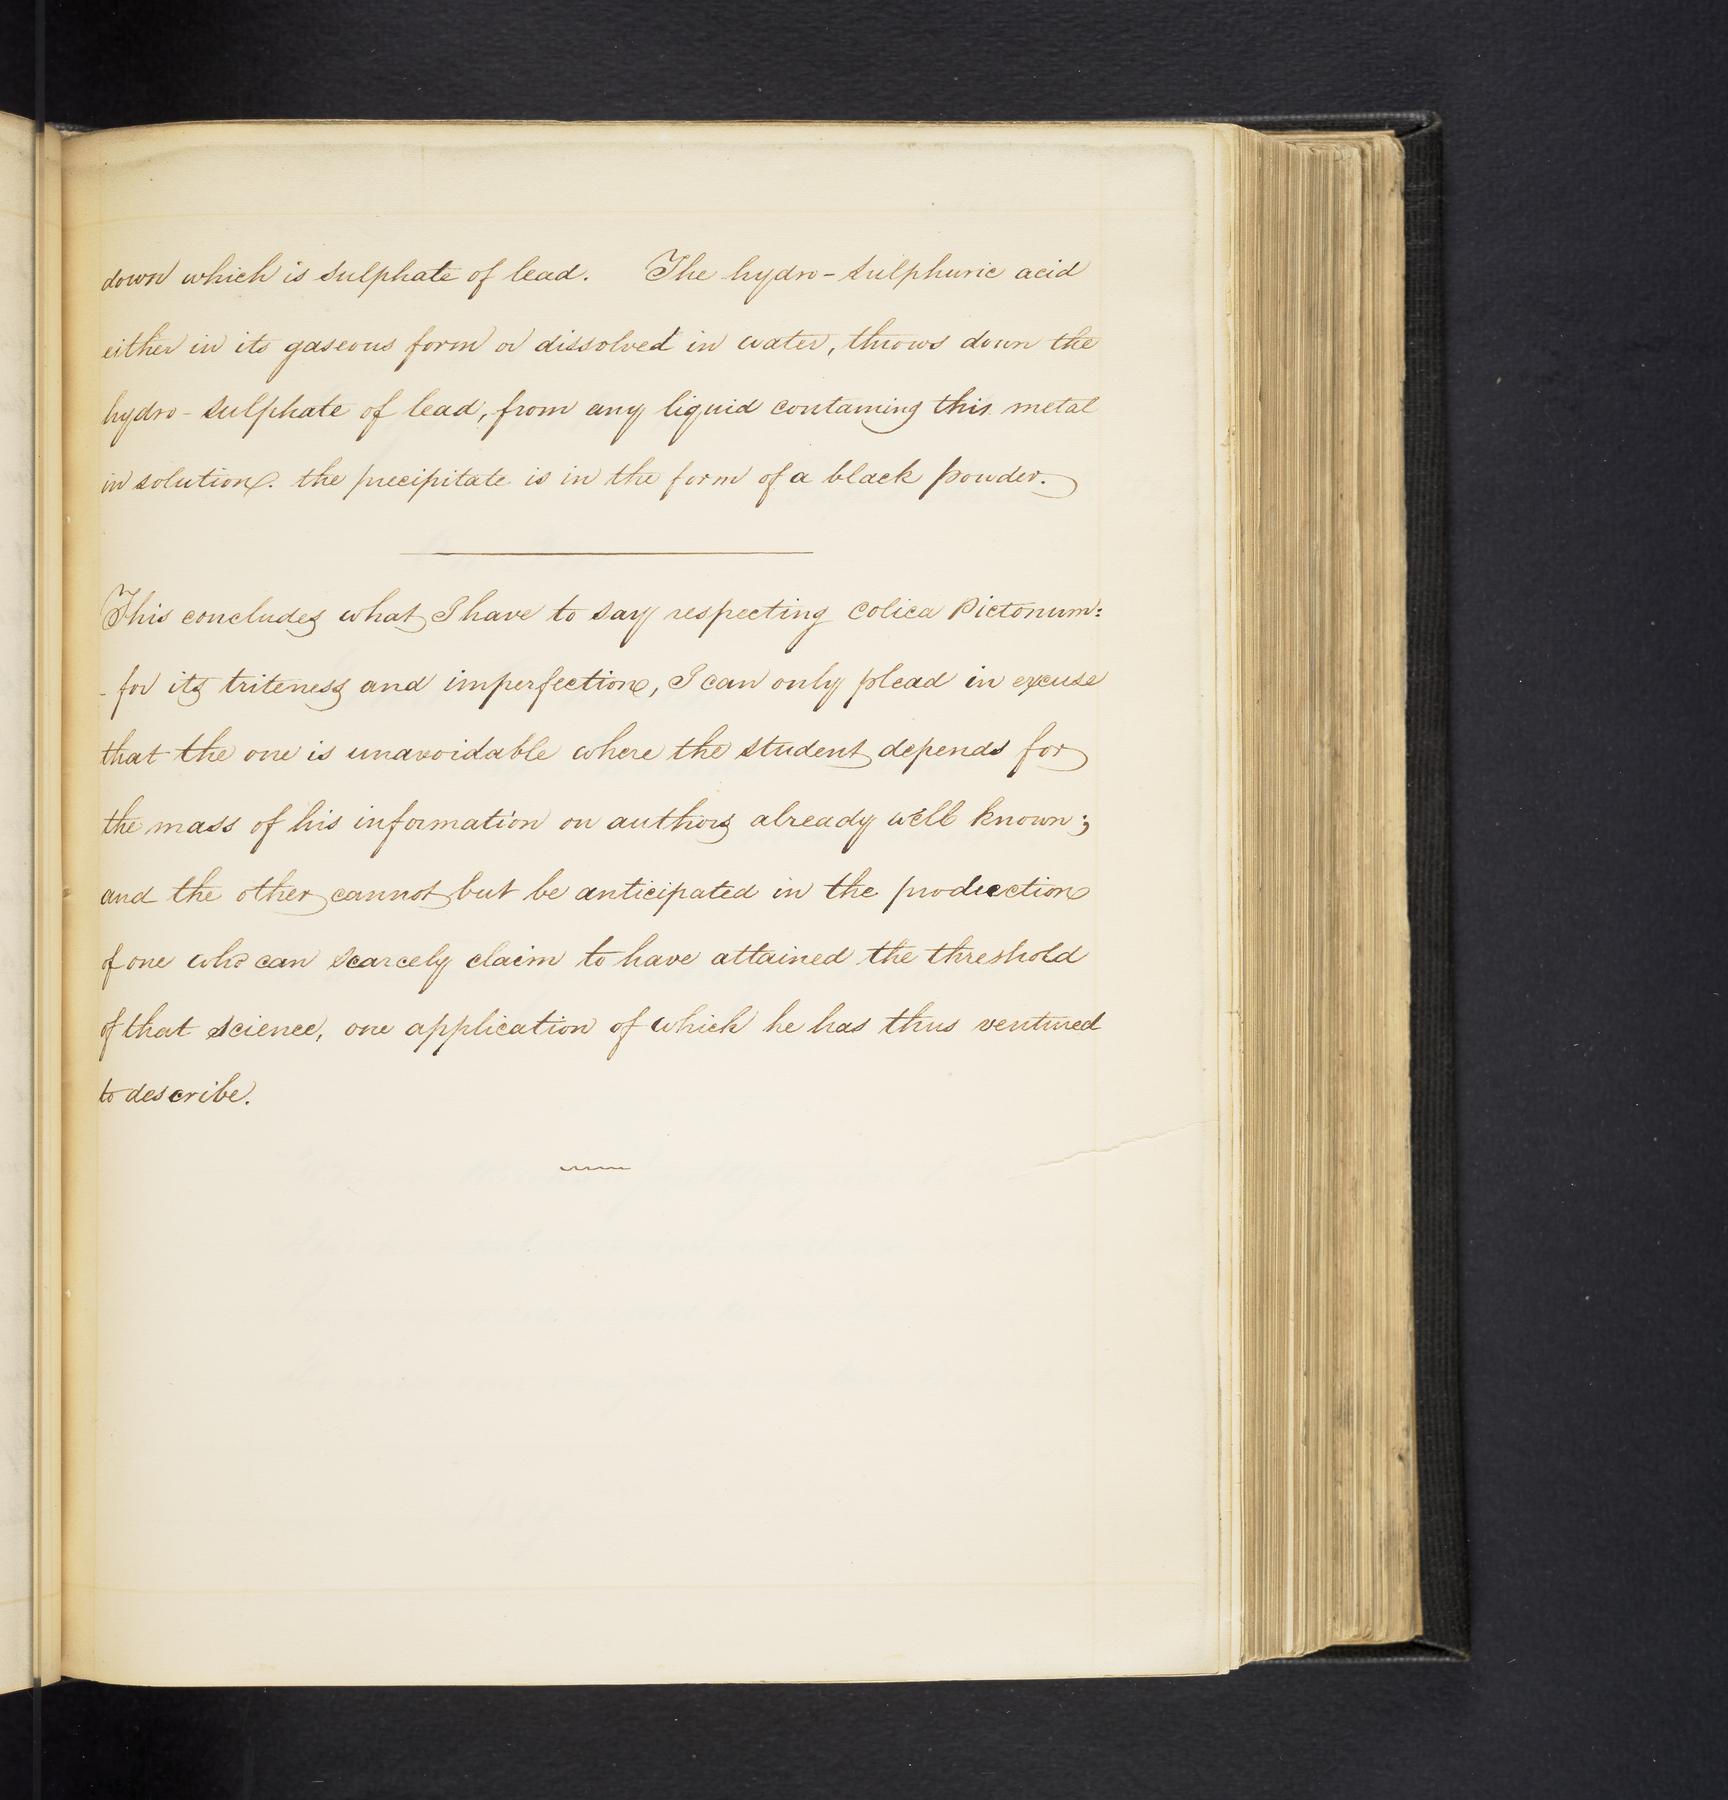 down which is sulphate of lead. The hydro-sulphuric acid
either in its gaseous form or dissolved in water, throws down the
hydro-sulphate of lead, from any liquid containing this metal
in solution. the precipitate is in the form of a black powder.
This concludes what I have to say respecting Colica Pictonum:
- for its triteness and imperfection, I can only plead in excuse
that the one is unavoidable where the student depends for
the mass of his information on authors already well known;
and the other cannot but be anticipated in the production
of one who can scarcely claim to have attained the threshold
of that science, one application of which he has thus ventured
to describe.